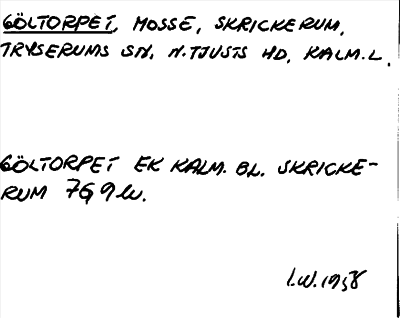 GÖLTORPET, MOSSE, SKRICKERUM,
TRYSERUMS SN, N. TJUSTS HD, KALM. L.
GÖLTORPET EK KALM. BL. SKRICKE-
RUM 7G 9
I.W. 1958